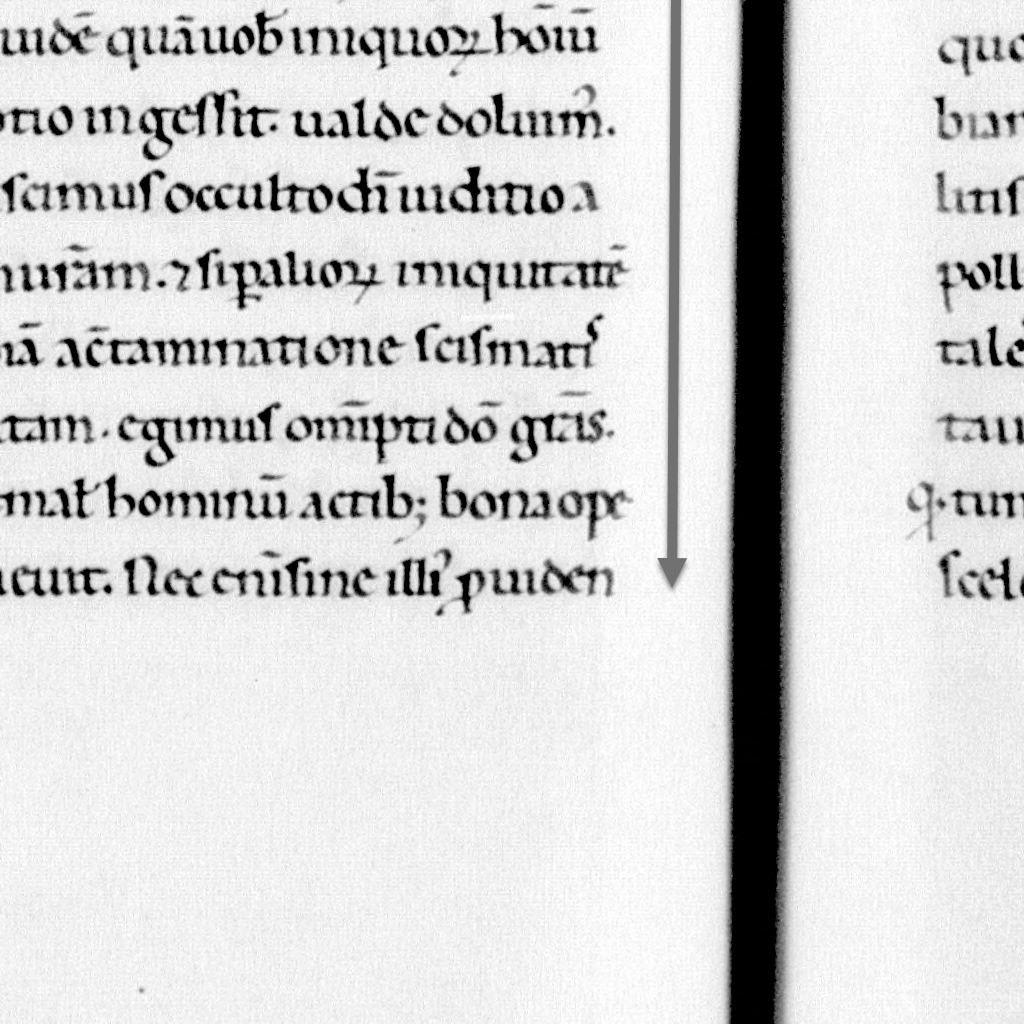 uidē quāuob iniquoꝝ hoīū
tio ingessit. ualde doluimꝰ.
scimus occulto dī iuditio a
nurām. ⁊ si ꝑ alioꝝ iniquitatē
iā actaminatione scismatis
tam. egimus omīpti dō grās.
mat hominū actib; bona ope
euit. Nec enī sine illiꝰ ꝓuiden
quo
bian
litis
poll
tale
tau
q. tum
scele